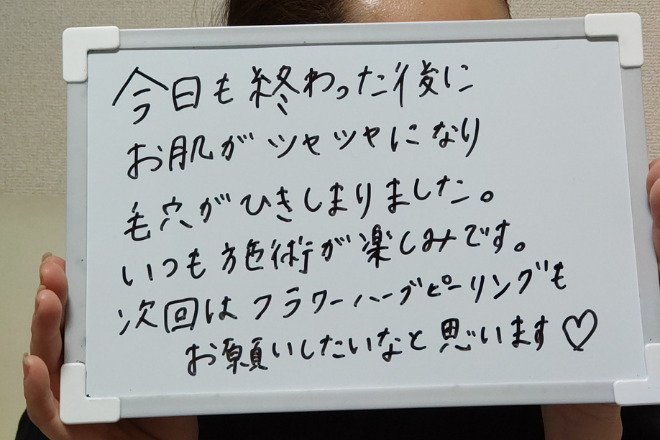 今日も終わった後に
お肌がツヤツヤになり
毛穴がひきしまりました。
いつも施術が楽しみです。
次回はフラワーハーブピーリングも
お願いしたいなと思います♡